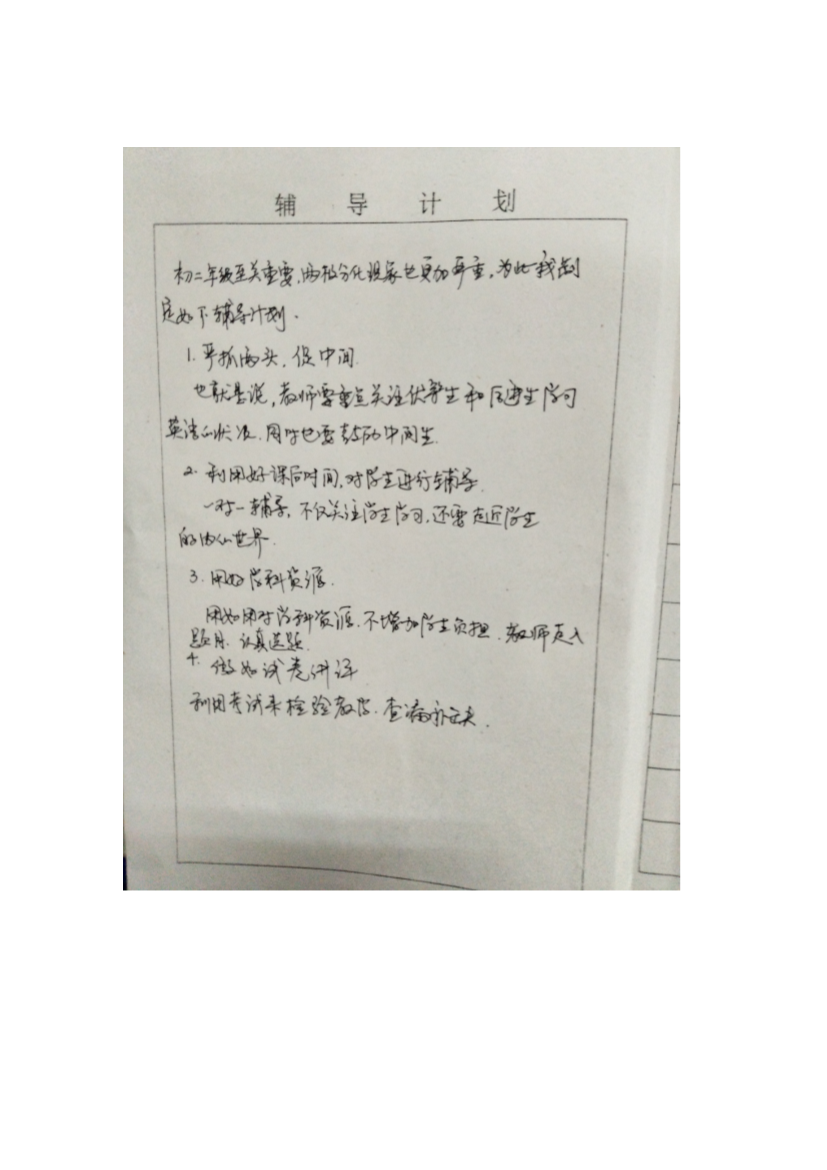 辅导计划
初二年级至关重要,两极分化现象也更加严重,为此我制
定如下辅导计划.
1.严抓两头,促中间.
也就是说,教师要重点关注优等生和后进生学习
英语的状况,同时也要鼓励中间生.
2.利用好课后时间,对学生进行辅导.
一对一辅导,不仅关注学生学习,还要走近学生
的内心世界.
3.用好学科资源.
用好用对学科资源,不增加学生负担,教师页入
题目,认真选题.
4.做好试卷讲评
利用考试来检验教学,查漏补缺.